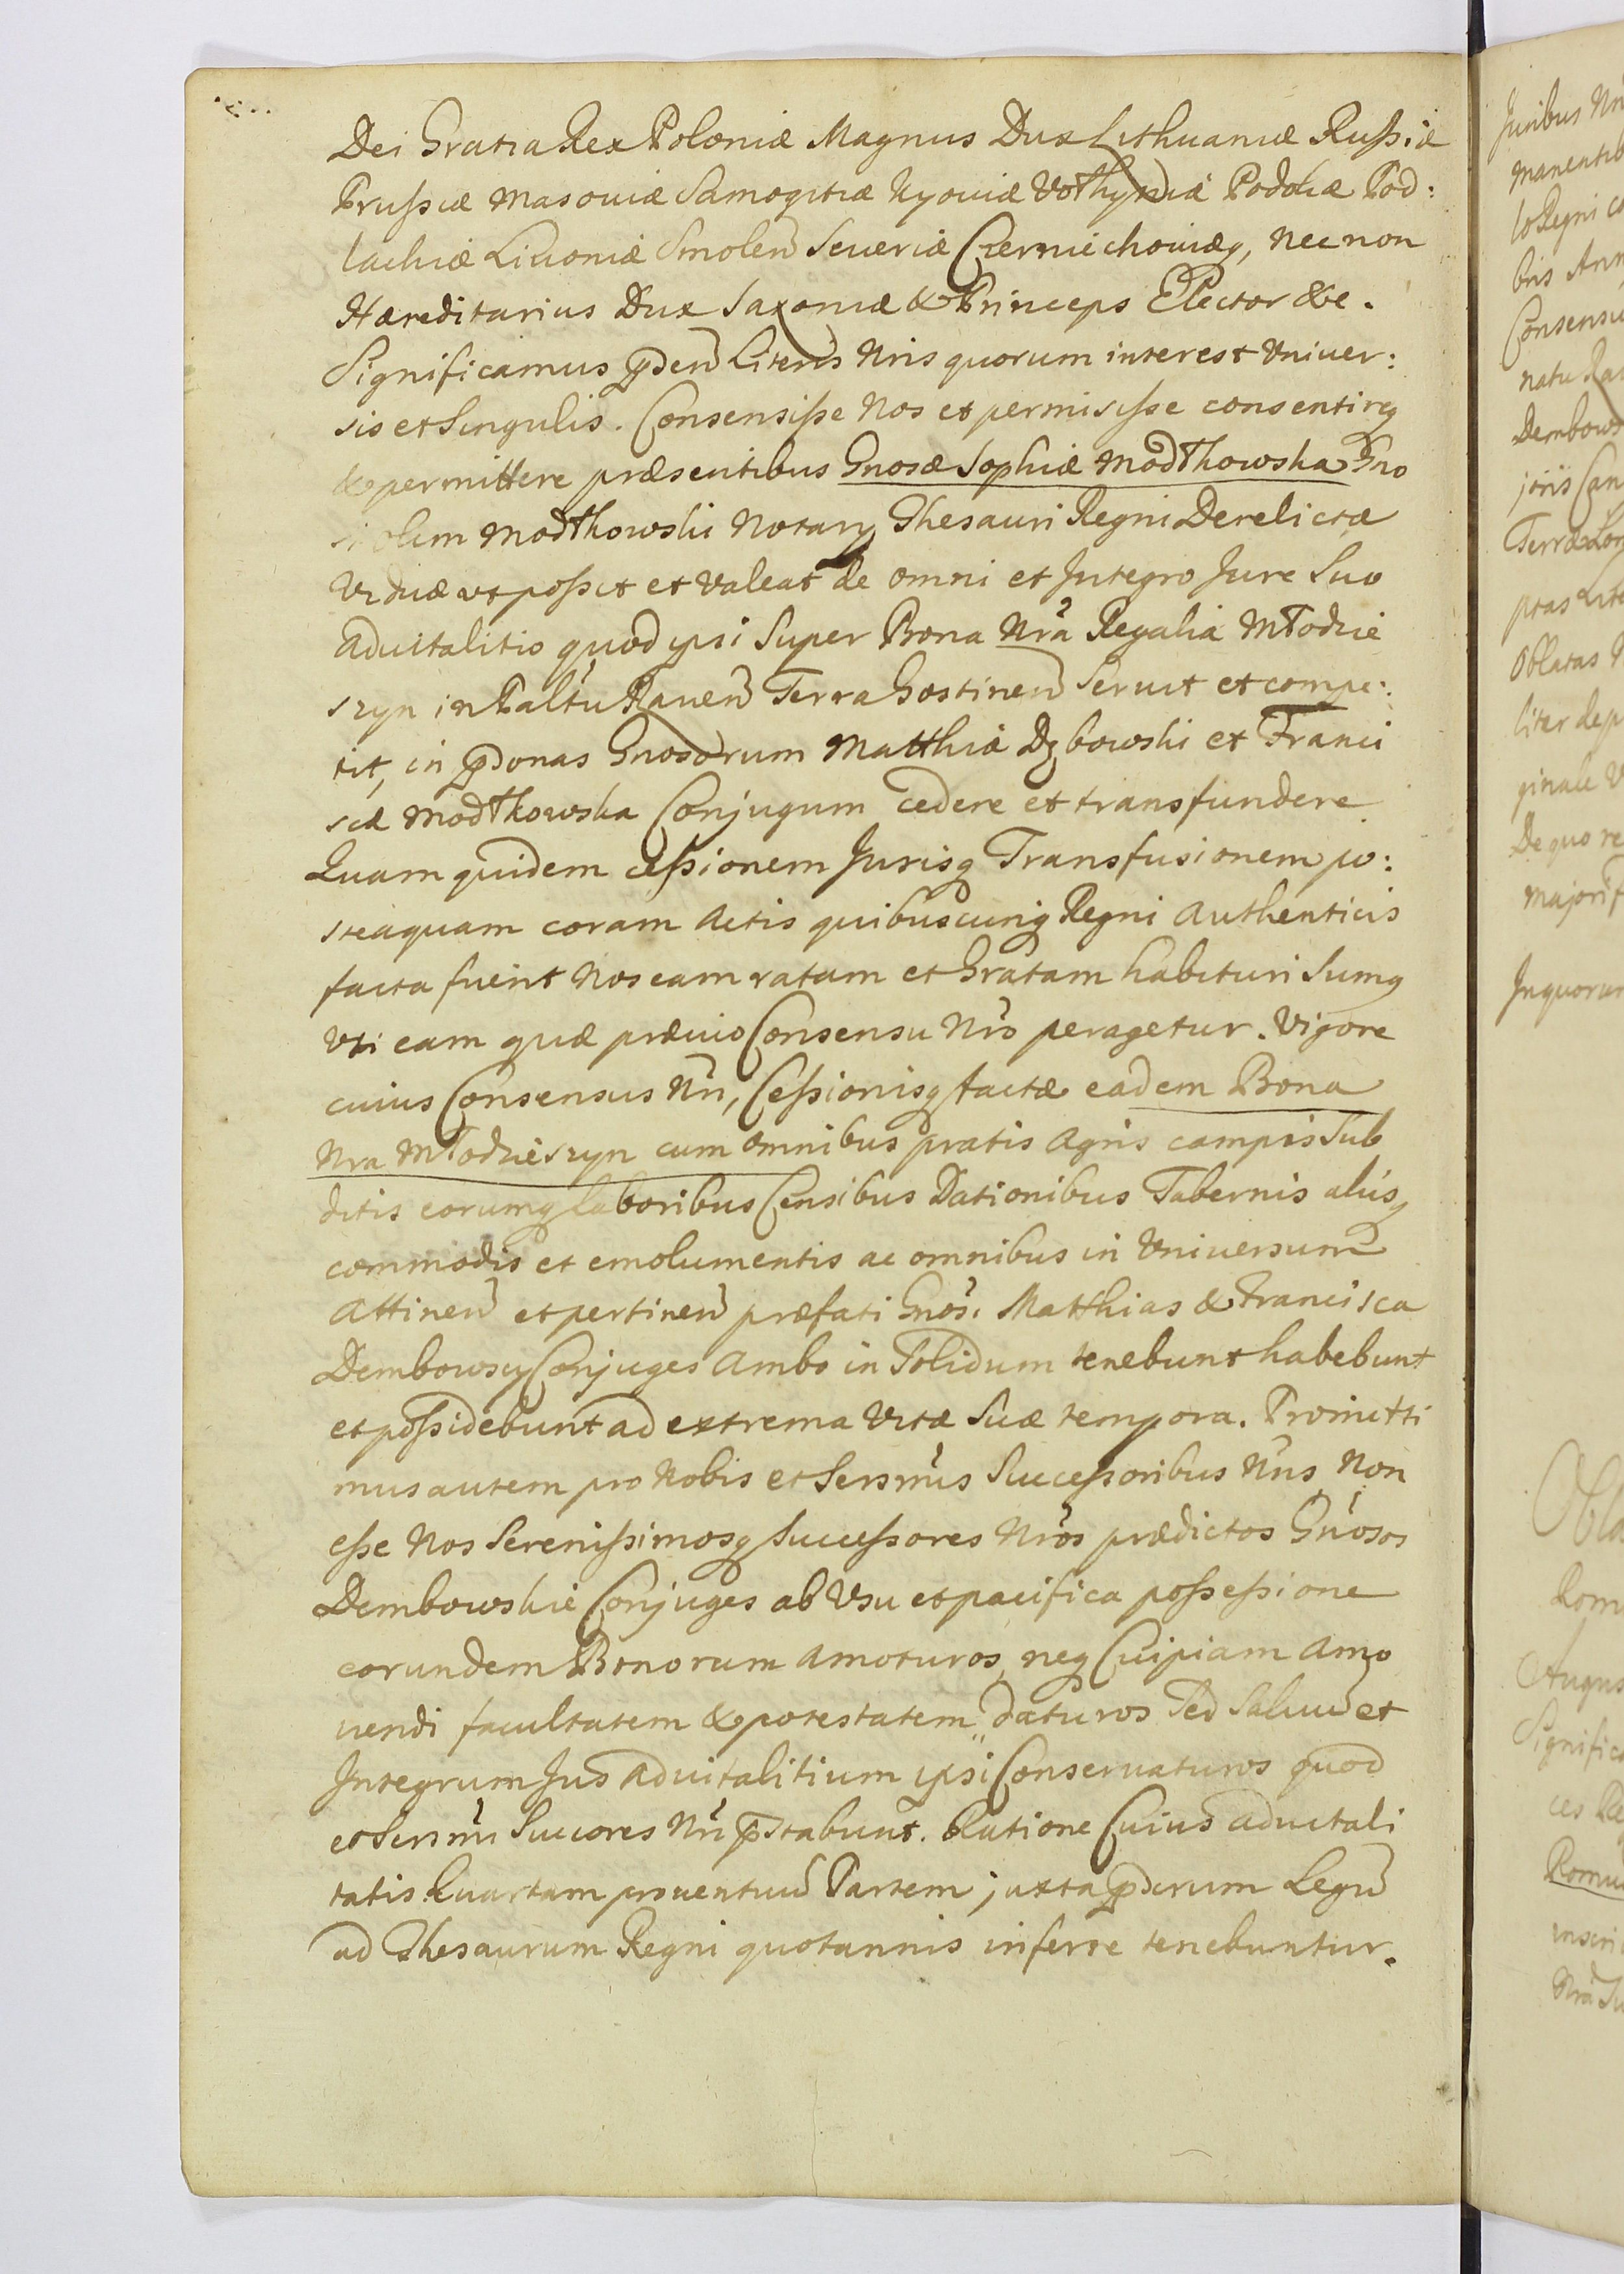 Dei Gratia Rex Poloniæ Magnus Dux Lithuaniæ Russiæ
Prussiæ Masoviæ Samogitiæ Kyoviæ Volhyniæ Podoliæ Pod:
lachiæ Livoniæ Smolen Severiæ Czerniechoviæq, nec non
Hæreditarius Dux Saxoniæ & Princeps Elector &c.
Significamus pnden Literis Nris quorum interest Univer:
sis et Singulis. Consensisse Nos et permisisse consentireq
& permittere præsentibus Gnosæ Sophiæ Modłkowska Gno
si olim Modłkowski Notarÿ Thesauri Regni Derelictæ
Viduæ ut possit et valeat de omni et Integro Jure Suo
advitalitio quod ipsi Super Bona Nra Regalia Młodzie
szyn in Paltu Raven Terra Gostinen Servit et compe:
tit, in psonas Gnosorum Matthiæ Dębowski et Franci
scæ Modłkowska Conjugum cedere et transfundere
Quam quidem cessionem Jurisq Transfusionem po:
steaquam coram Actis quibuscunq Regni Authenticis
facta fuerit Nos eam ratam et Gratam habituri Sumq
Uti eam quæ prævio Consensu Nro peragetur. Vigore
cuius Consensus Nri, Cessionisq factæ eadem Bona
Nra Młodzieszyn cum omnibus pratis Agris campis Sub
ditis eorumq laboribus Censibus Dationibus Tabernis aliisq
commodis et emolumentis ac omnibus in Universum
Attinen et pertinen præfati Gnos. Matthias & Francisca
Dembowscy Conjuges Ambo in Solidum tenebunt habebunt
et possidebunt ad extrema Vitæ Suæ tempora. Promitti
mus autem pro Nobis et Sersmis Successoribus Nris, Non
esse Nos Serenissimosq Successores Nros prædictos Gnosos
Dembowskie Conjuges ab Usu et pacifica possessione
eorundem Bonorum Amoturos, neq Cuipiam Amo
vendi facultatem & potestatem daturos Sed Salvum et
Integrum Jus Advitalitium ipsi Conservaturos quod
et Sersmi Succores Nri pstabunt. Ratione Cuius advitali
tatis Quartam proventuum Partem juxta pscrum Legum
ad Thesaurum Regni quotannis inferre tenebuntur.
Juribus
manentib
lo Regni
bris
Consensu
natu
Dembows
joris Can
Terræ
ptas
Oblatas
liter
ginale
De quo
majori
In quorum
Obla
Rom
Augus
Signific
ces
Romu
inscri
Nra